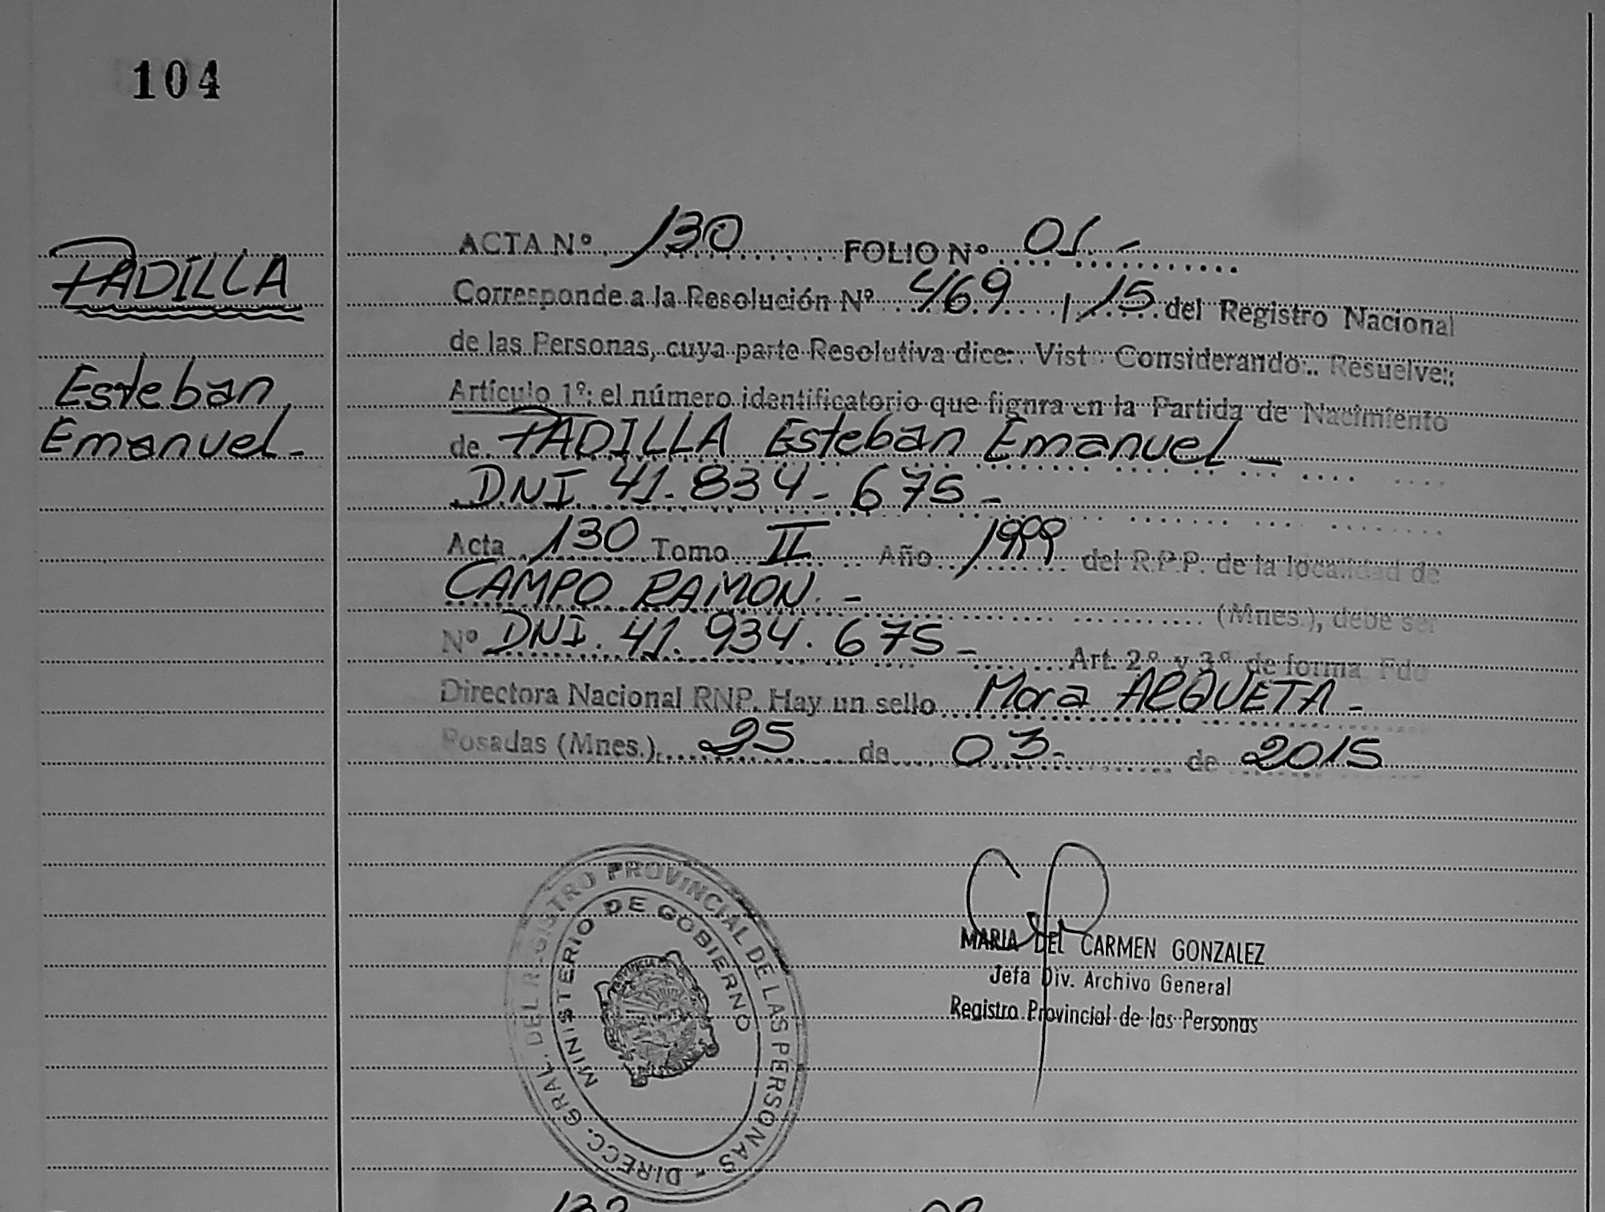 104
PADILLA
Esteban
Emanuel-
ACTA Nº 130 FOLIO Nº 01-
Corresponde a la Resolución Nº 469 / 15 del Registro Nacional
de las Personas, cuya parte Resolutiva dice: Vist Considerando: Resuelve:
Artículo 1º: el número identificatorio que figura en la Partida de Nacimiento
de PADILLA Esteban Emanuel-
DNI 41.834.675-
Acta 130 Tomo II Año 1999 del R.P.P. de la localidad de
CAMPO RAMON.-
(Mnes.), debe ser
Nº DNI. 41.934.675- Art. 2º y 3º de forma Fdo
Directora Nacional RNP. Hay un sello Mora ARQUETA-
Posadas (Mnes.), 25 de 03- de 2015
DIRECC. GRAL. DEL REGISTRO PROVINCIAL DE LAS PERSONAS -
MINISTERIO DE GOBIERNO
MARIA DEL CARMEN GONZALEZ
Jefa Div. Archivo General
Registro Provincial de las Personas